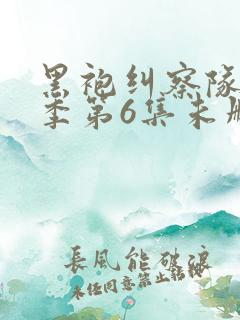 黑袍纠察队
季第6集未删
長風能破浪
未经同意禁止转载